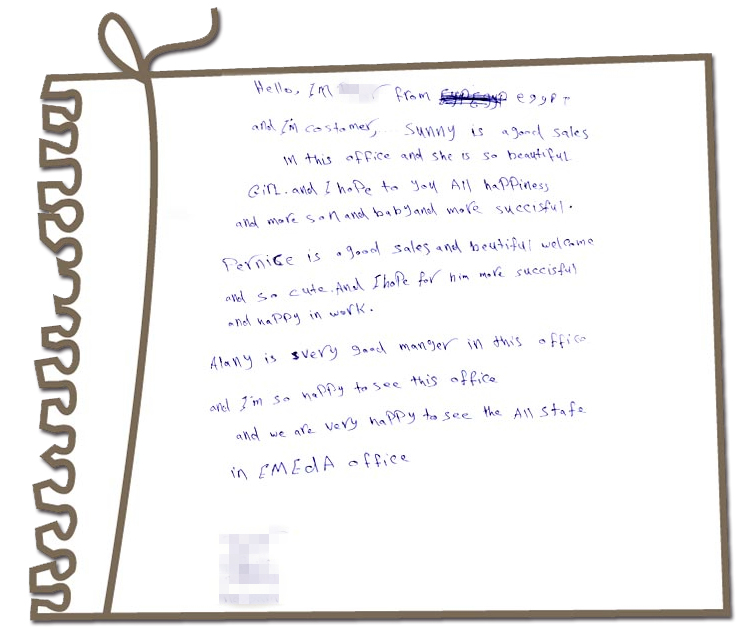 Hello, I'm from egypt
and I'm costomer, Sunny is a good sales
in this office and she is so beautiful
Girl. and I hope to you All happiness
and more son and baby and more succisful.
Pernice is a good sales and beutiful welcome
and so cute. And I hope for him more succisful
and happy in work.
Alany is very good manger in this office
and I'm so happy to see this office
and we are very happy to see the All stafe
in EMEdA office